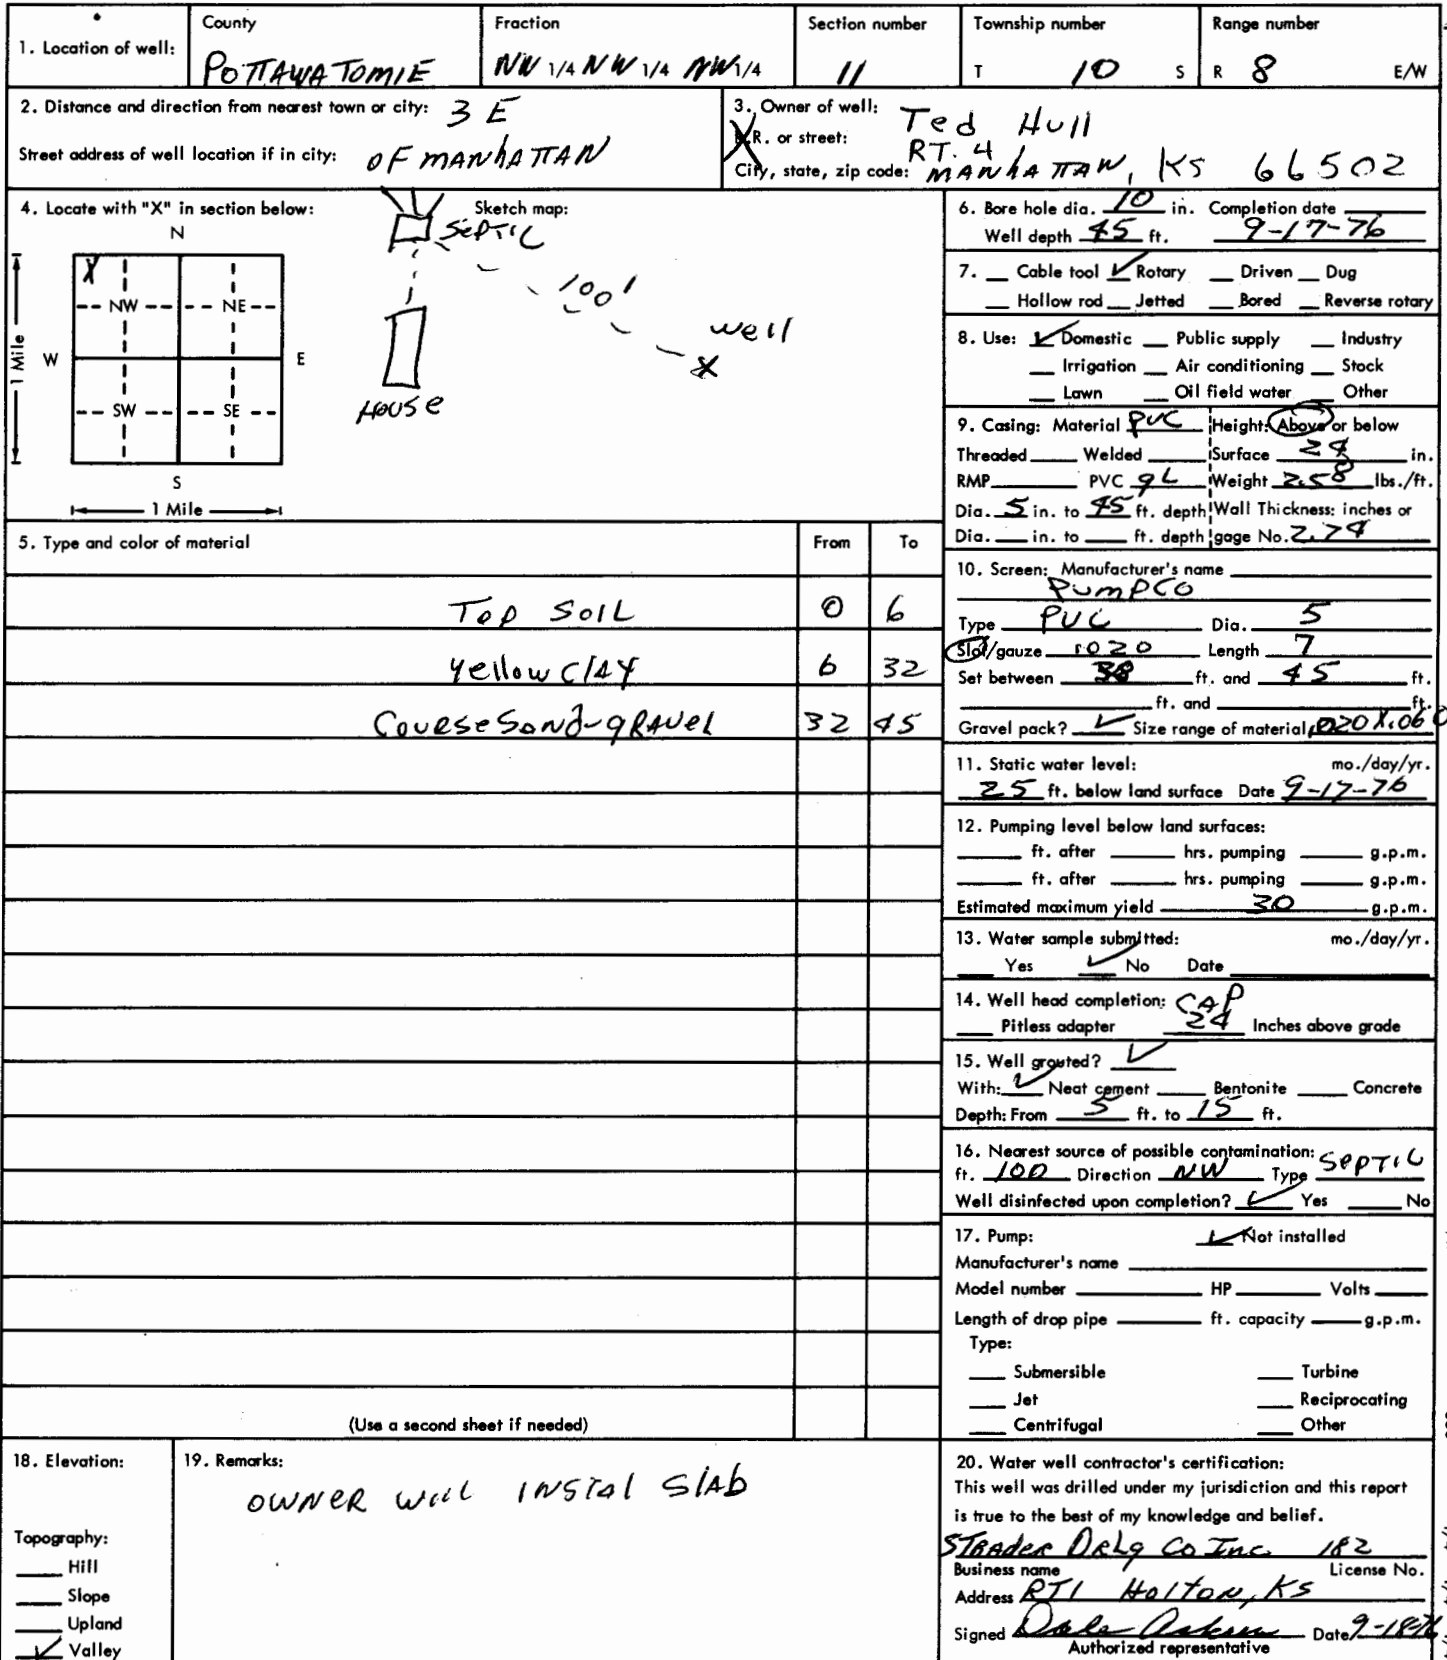 1. Location of well: County Fraction Section number Township number Range number
POTTAWATOMIE NW 1/4 NW 1/4 NW 1/4 11 T 10 S R 8 E/W
2. Distance and direction from nearest town or city: 3 E
Street address of well location if in city: OF MANHATTAN
3. Owner of well: Ted Hull
R.R. or street: RT. 4
City, state, zip code: MANHATTAN, KS 66502
4. Locate with "X" in section below: Sketch map:
N
X
NW NE
W E
SW SE
S
1 Mile
1 Mile
SEPTIC
100'
well
x
HOUSE
5. Type and color of material From To
Top SOIL 0 6
yellow CLAY 6 32
Course Sand-gRAVEL 32 45
(Use a second sheet if needed)
6. Bore hole dia. 10 in. Completion date
Well depth 45 ft. 9-17-76
7. Cable tool ✓ Rotary Driven Dug
Hollow rod Jetted Bored Reverse rotary
8. Use: ✓ Domestic Public supply Industry
Irrigation Air conditioning Stock
Lawn Oil field water Other
9. Casing: Material PVC Height: Above or below
Threaded Welded Surface 24 in.
RMP PVC gL Weight 2.58 lbs./ft.
Dia. 5 in. to 45 ft. depth Wall Thickness: inches or
Dia. in. to ft. depth gage No. 2.74
10. Screen: Manufacturer's name
PumpCO
Type PVC Dia. 5
Slot/gauze .020 Length 7
Set between 38 ft. and 45 ft.
ft. and ft.
Gravel pack? ✓ Size range of material .020 X .060
11. Static water level: mo./day/yr.
25 ft. below land surface Date 9-17-76
12. Pumping level below land surfaces:
ft. after hrs. pumping g.p.m.
ft. after hrs. pumping g.p.m.
Estimated maximum yield 30 g.p.m.
13. Water sample submitted: mo./day/yr.
Yes ✓ No Date
14. Well head completion: CAP
Pitless adapter 24 Inches above grade
15. Well grouted? ✓
With: ✓ Neat cement Bentonite Concrete
Depth: From 5 ft. to 15 ft.
16. Nearest source of possible contamination:
ft. 100 Direction NW Type SEPTIC
Well disinfected upon completion? ✓ Yes No
17. Pump: ✓ Not installed
Manufacturer's name
Model number HP Volts
Length of drop pipe ft. capacity g.p.m.
Type:
Submersible Turbine
Jet Reciprocating
Centrifugal Other
18. Elevation:
Topography:
Hill
Slope
Upland
✓ Valley
19. Remarks:
OWNER WILL INSTAL SLAB
20. Water well contractor's certification:
This well was drilled under my jurisdiction and this report
is true to the best of my knowledge and belief.
STRADER DRLg Co Inc. 182
Business name License No.
Address RT1 Holton, KS
Signed Dale Date 9-18-76
Authorized representative